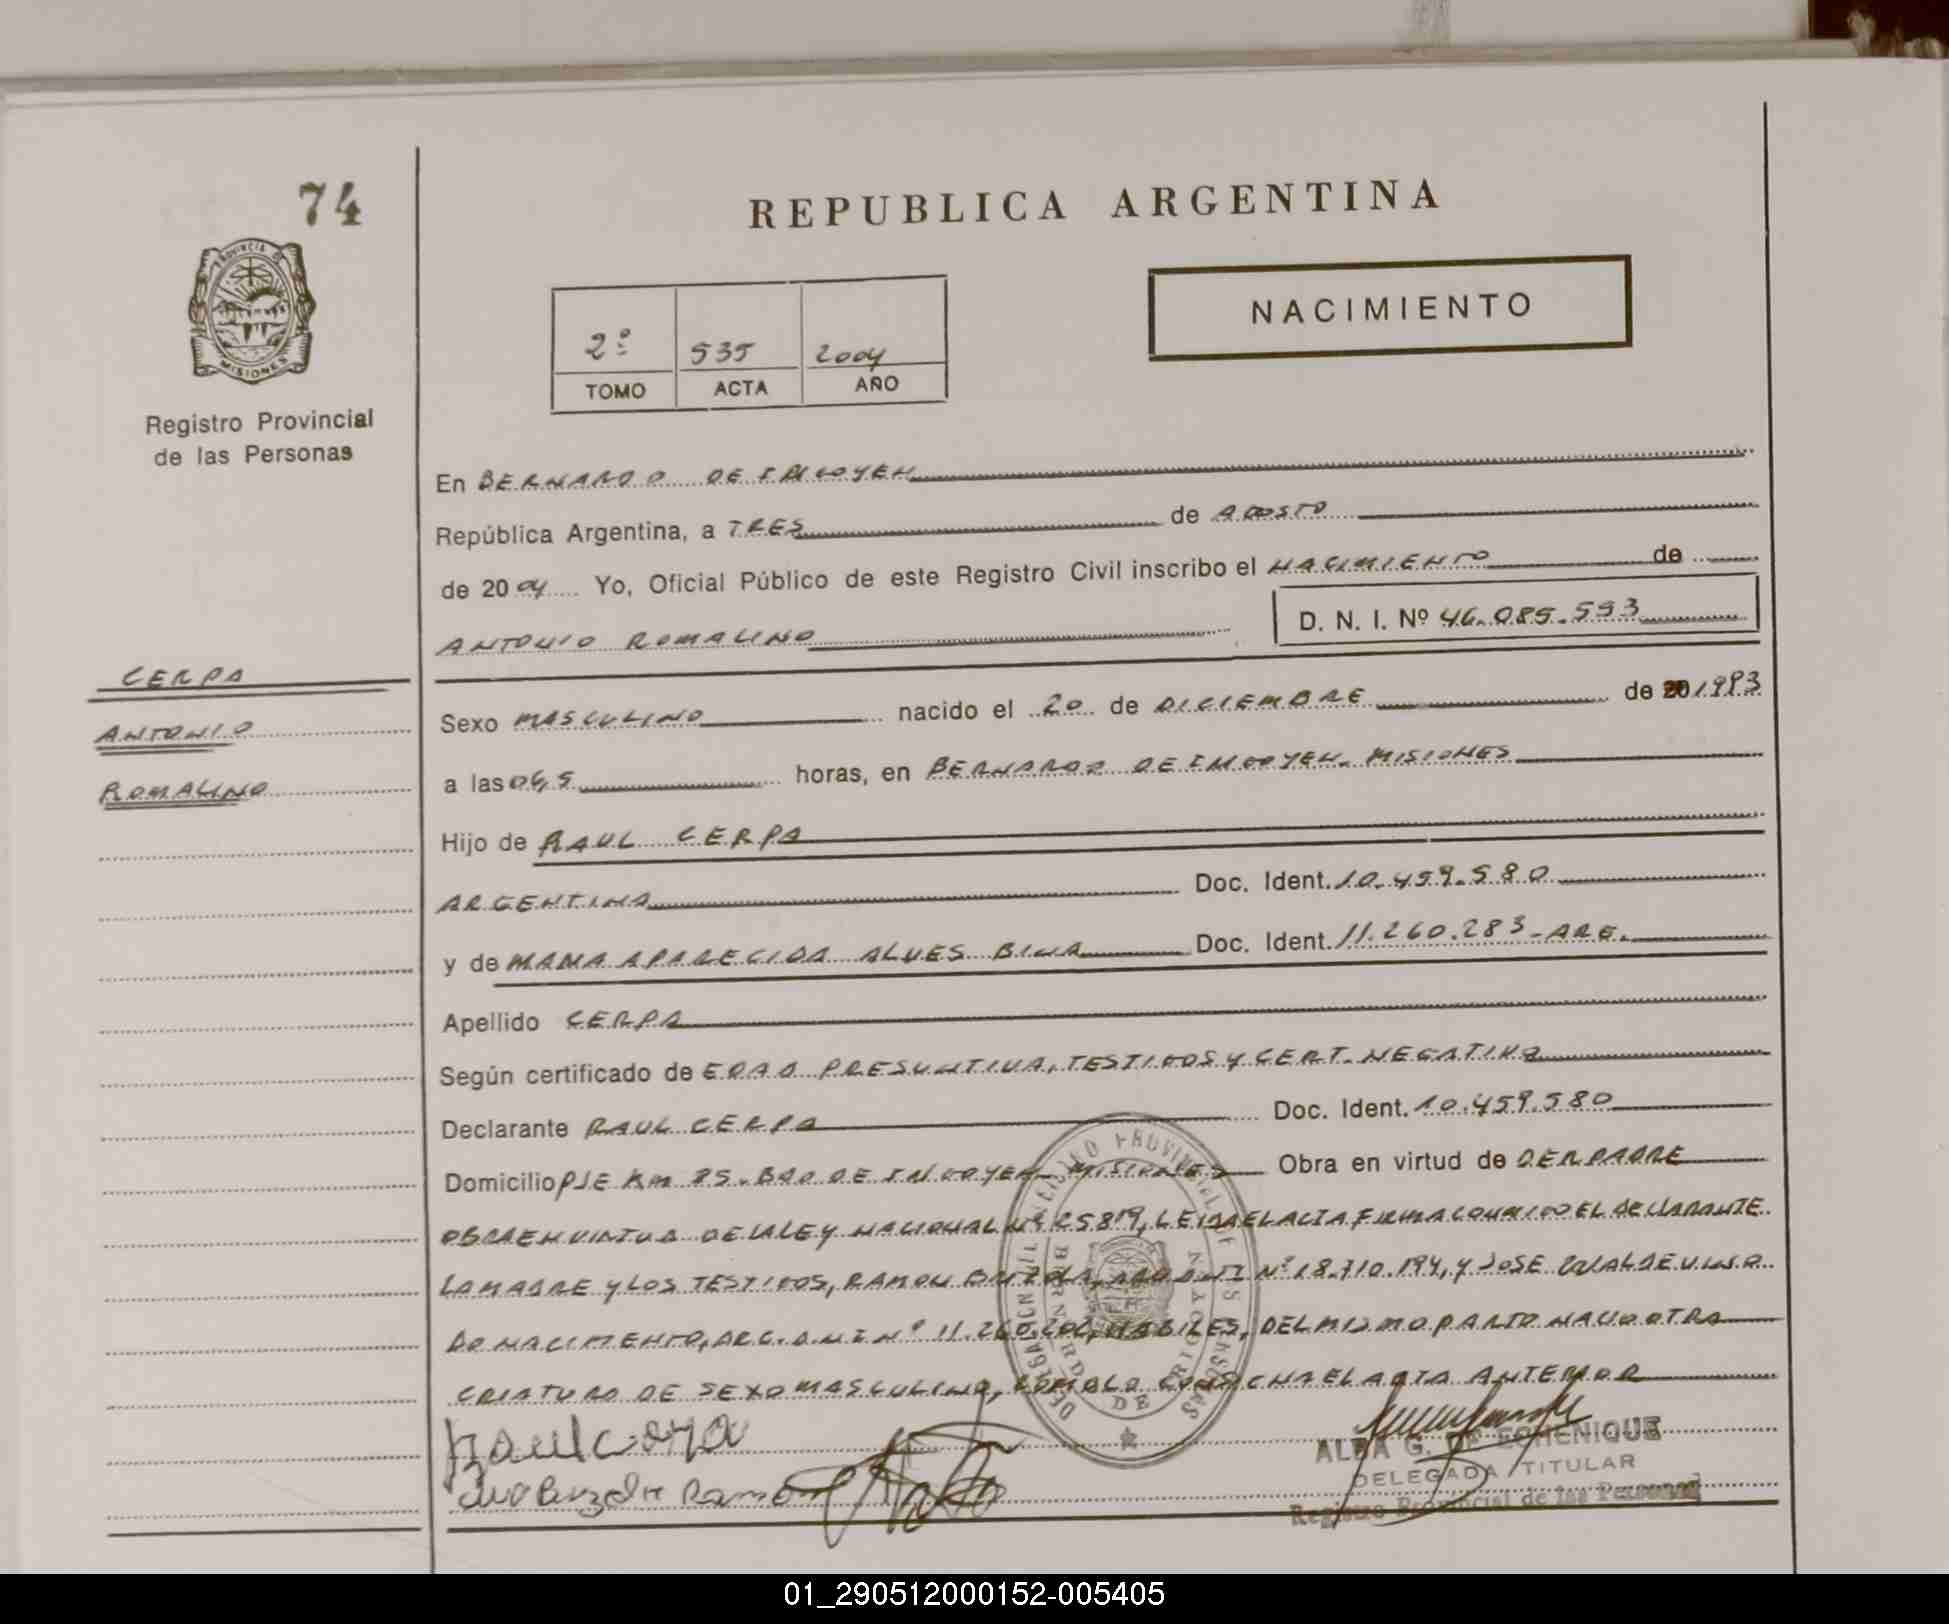 74
REPUBLICA ARGENTINA
PROVINCIA DE
MISIONES
Registro Provincial
de las Personas
NACIMIENTO
2º 535 2004
TOMO ACTA AÑO
En BERNARDO DE IRIGOYEN
República Argentina, a TRES de AGOSTO
de 2004 Yo, Oficial Público de este Registro Civil inscribo el NACIMIENTO de
ANTONIO ROMALINO D. N. I. Nº 46.085.593
CERPA
ANTONIO
ROMALINO
Sexo MASCULINO nacido el 20 de DICIEMBRE de 1993
a las 06,5 horas, en BERNARDO DE IRIGOYEN. MISIONES
Hijo de RAUL CERPA
ARGENTINA Doc. Ident. 10.459.580
y de MARIA APARECIDA ALVES BINA Doc. Ident. 11.260.283-ARG.
Apellido CERPA
Según certificado de EDAD PRESUNTIVA, TESTIGOS Y CERT. NEGATIVO
Declarante RAUL CERPA Doc. Ident. 10.459.580
Domicilio PJE KM 85. BDO DE IRIGOYEN MISIONES Obra en virtud de SER PADRE
OBRA EN VIRTUD DE LA LEY NACIONAL Nº 25819, LEIDA EL ACTA FIRMA CONMIGO EL DECLARANTE
LA MADRE Y LOS TESTIGOS, RAMON BRIZOLA, ARG DNI Nº 18.710.194, Y JOSE
DO NACIMENTO, ARG. DNI Nº 11.260.202, HABILES, DEL MISMO PARTO NACIO OTRA
CRIATURA DE SEXO MASCULINO, COMO LO CONSIGNA EL ACTA ANTERIOR
DELEGACION REGISTRO PROVINCIAL DE LAS PERSONAS
BERNARDO DE IRIGOYEN
Raul Cerpa
Ramon
ALBA G. DE ECHENIQUE
DELEGADA TITULAR
Registro Provincial de las Personas
01_290512000152-005405